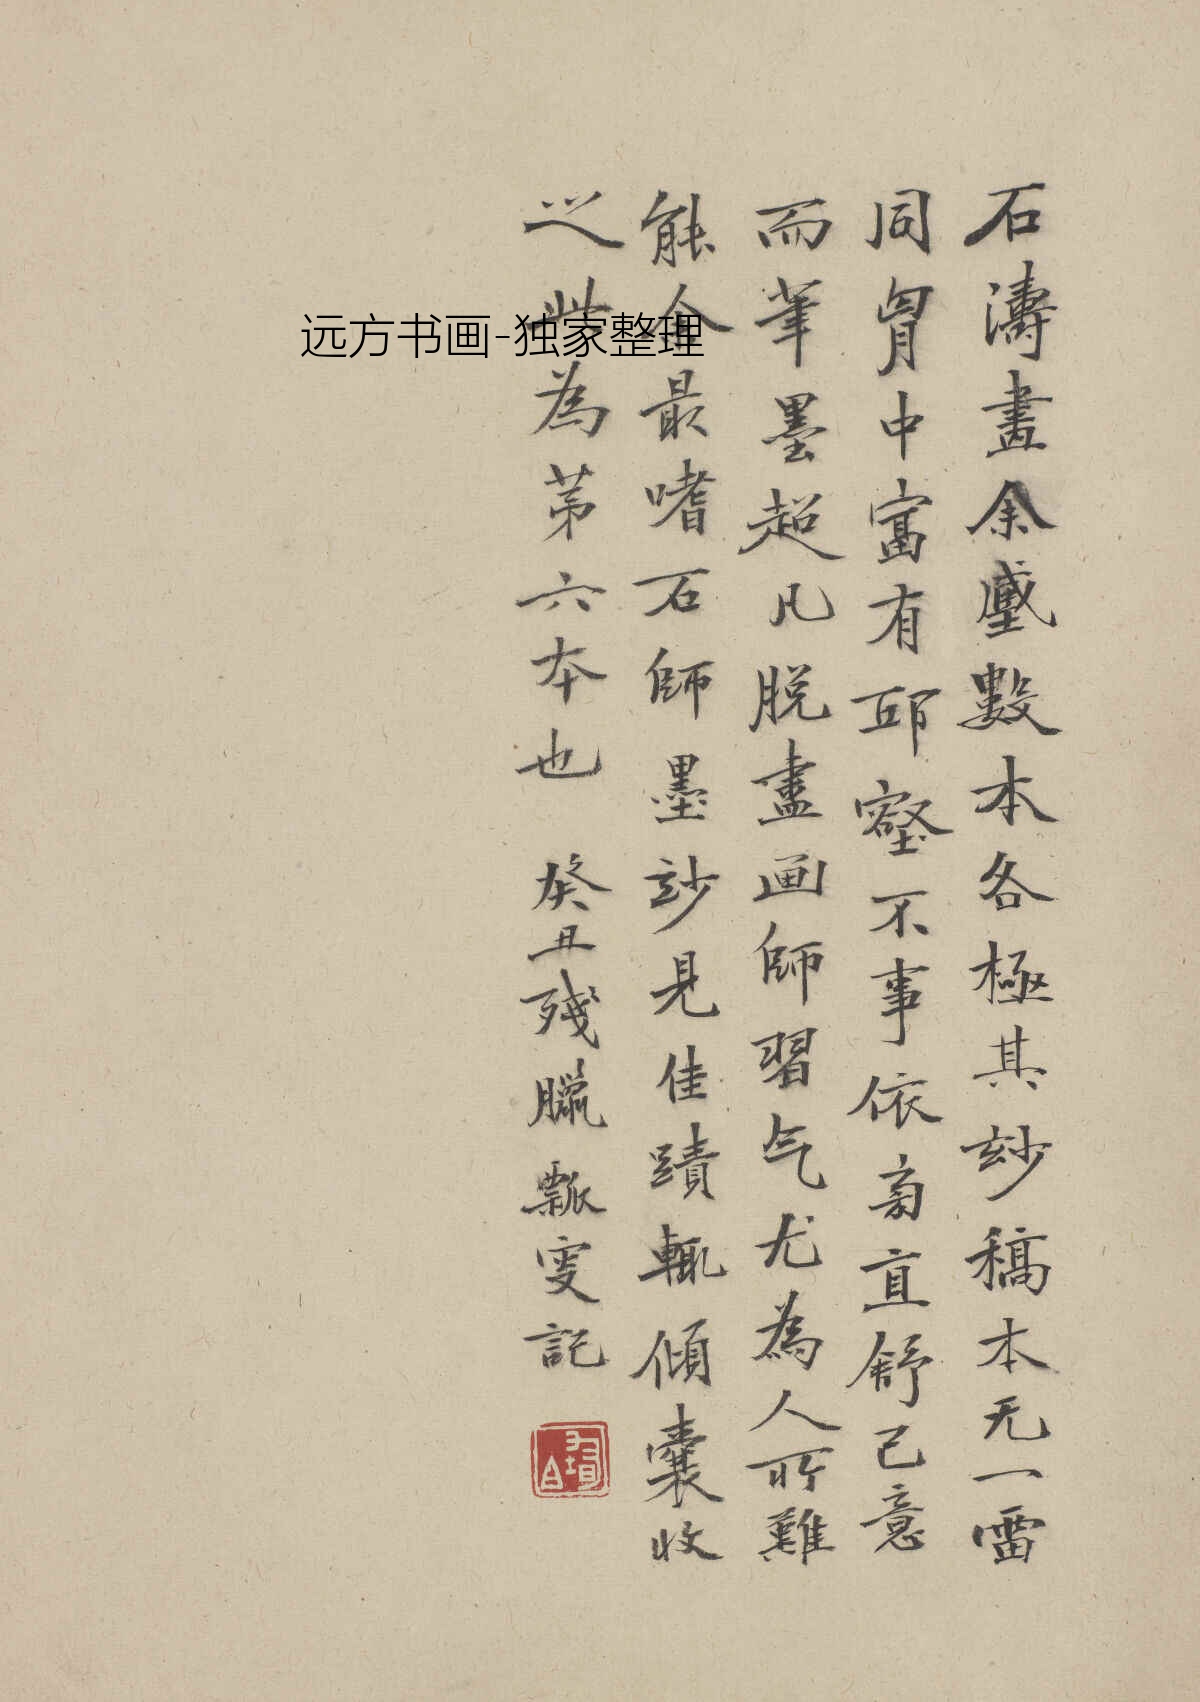 石濤畫余藏數本各極其妙稿本无一雷
同胷中富有邱壑不事依旁直舒己意
而筆墨超凡脫盡画師習气尤為人所難
能余最嗜石師墨妙見佳蹟輒傾囊收
之此為第六本也 癸丑殘臘瓢叟記
远方书画-独家整理